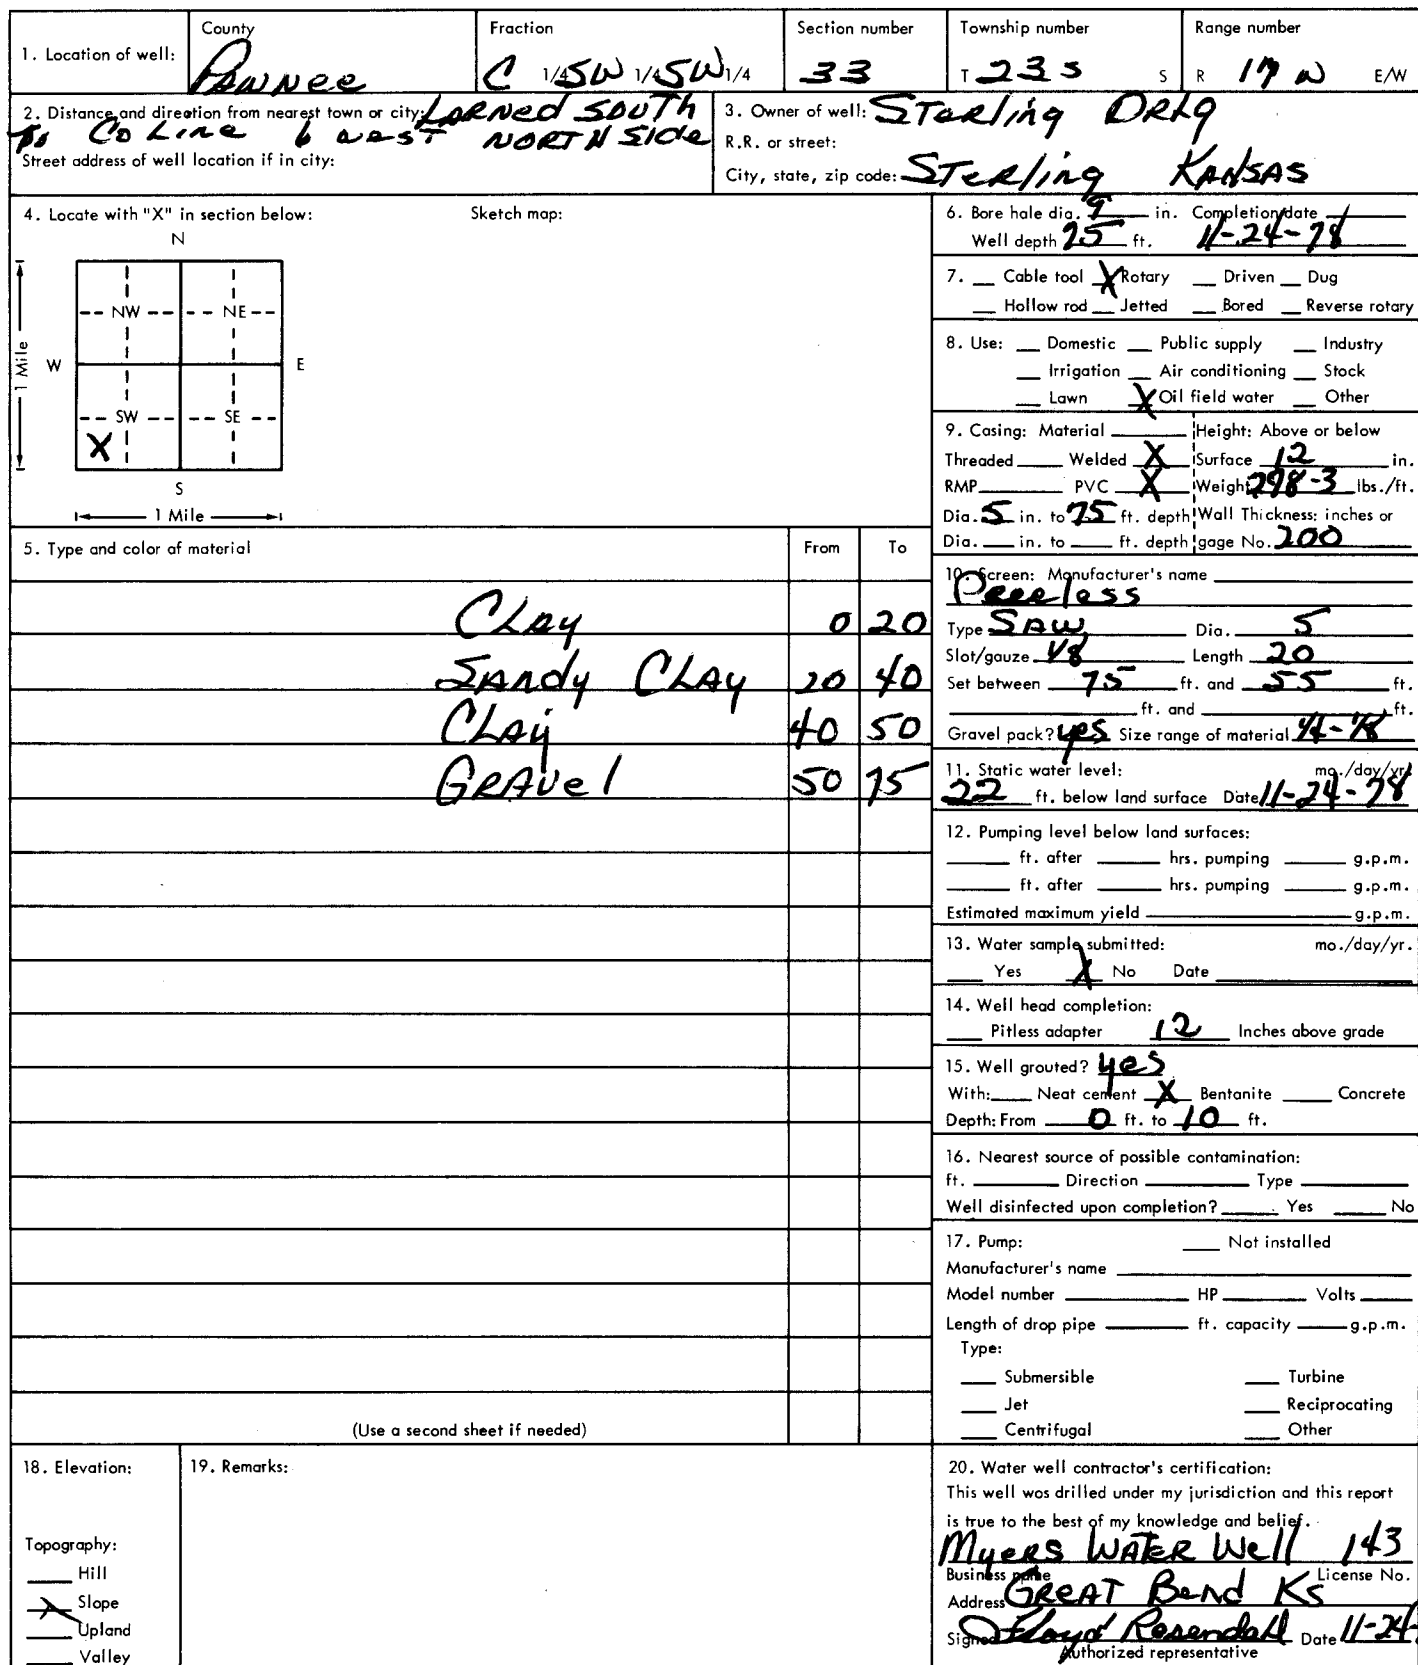 1. Location of well:
County
Pawnee
Fraction
C 1/4 SW 1/4 SW 1/4
Section number
33
Township number
T 23 s S
Range number
R 17 W E/W
2. Distance and direction from nearest town or city: Larned South
To Co Line 6 west North Side
Street address of well location if in city:
3. Owner of well: Sterling Drlg
R.R. or street:
City, state, zip code: Sterling Kansas
4. Locate with "X" in section below:
Sketch map:
N
NW NE
W E
SW SE
X
S
1 Mile
1 Mile
5. Type and color of material From To
Clay 0 20
Sandy Clay 20 40
Clay 40 50
Gravel 50 75
(Use a second sheet if needed)
6. Bore hole dia. 9 in. Completion date
Well depth 75 ft. 11-24-78
7. __ Cable tool X Rotary __ Driven __ Dug
__ Hollow rod __ Jetted __ Bored __ Reverse rotary
8. Use: __ Domestic __ Public supply __ Industry
__ Irrigation __ Air conditioning __ Stock
__ Lawn X Oil field water __ Other
9. Casing: Material ____ Height: Above or below
Threaded ____ Welded X Surface 12 in.
RMP ____ PVC X Weight 298-3 lbs./ft.
Dia. 5 in. to 75 ft. depth Wall Thickness: inches or
Dia. __ in. to __ ft. depth gage No. 200
10. Screen: Manufacturer's name
Peerless
Type SAW Dia. 5
Slot/gauze 1/8 Length 20
Set between 75 ft. and 55 ft.
____ ft. and ____ ft.
Gravel pack? yes Size range of material 1/4-1/8
11. Static water level: mo./day/yr.
22 ft. below land surface Date 11-24-78
12. Pumping level below land surfaces:
____ ft. after ____ hrs. pumping ____ g.p.m.
____ ft. after ____ hrs. pumping ____ g.p.m.
Estimated maximum yield ____ g.p.m.
13. Water sample submitted: mo./day/yr.
__ Yes X No Date ____
14. Well head completion:
__ Pitless adapter 12 Inches above grade
15. Well grouted? yes
With: __ Neat cement X Bentanite __ Concrete
Depth: From 0 ft. to 10 ft.
16. Nearest source of possible contamination:
ft. ____ Direction ____ Type ____
Well disinfected upon completion? ____ Yes ____ No
17. Pump: __ Not installed
Manufacturer's name ____
Model number ____ HP ____ Volts ____
Length of drop pipe ____ ft. capacity ____ g.p.m.
Type:
__ Submersible __ Turbine
__ Jet __ Reciprocating
__ Centrifugal __ Other
18. Elevation:
Topography:
__ Hill
X Slope
__ Upland
__ Valley
19. Remarks:
20. Water well contractor's certification:
This well was drilled under my jurisdiction and this report
is true to the best of my knowledge and belief.
Myers Water Well 143
Business name License No.
Address Great Bend Ks
Signed Floyd Rosendahl Date 11-24-
Authorized representative